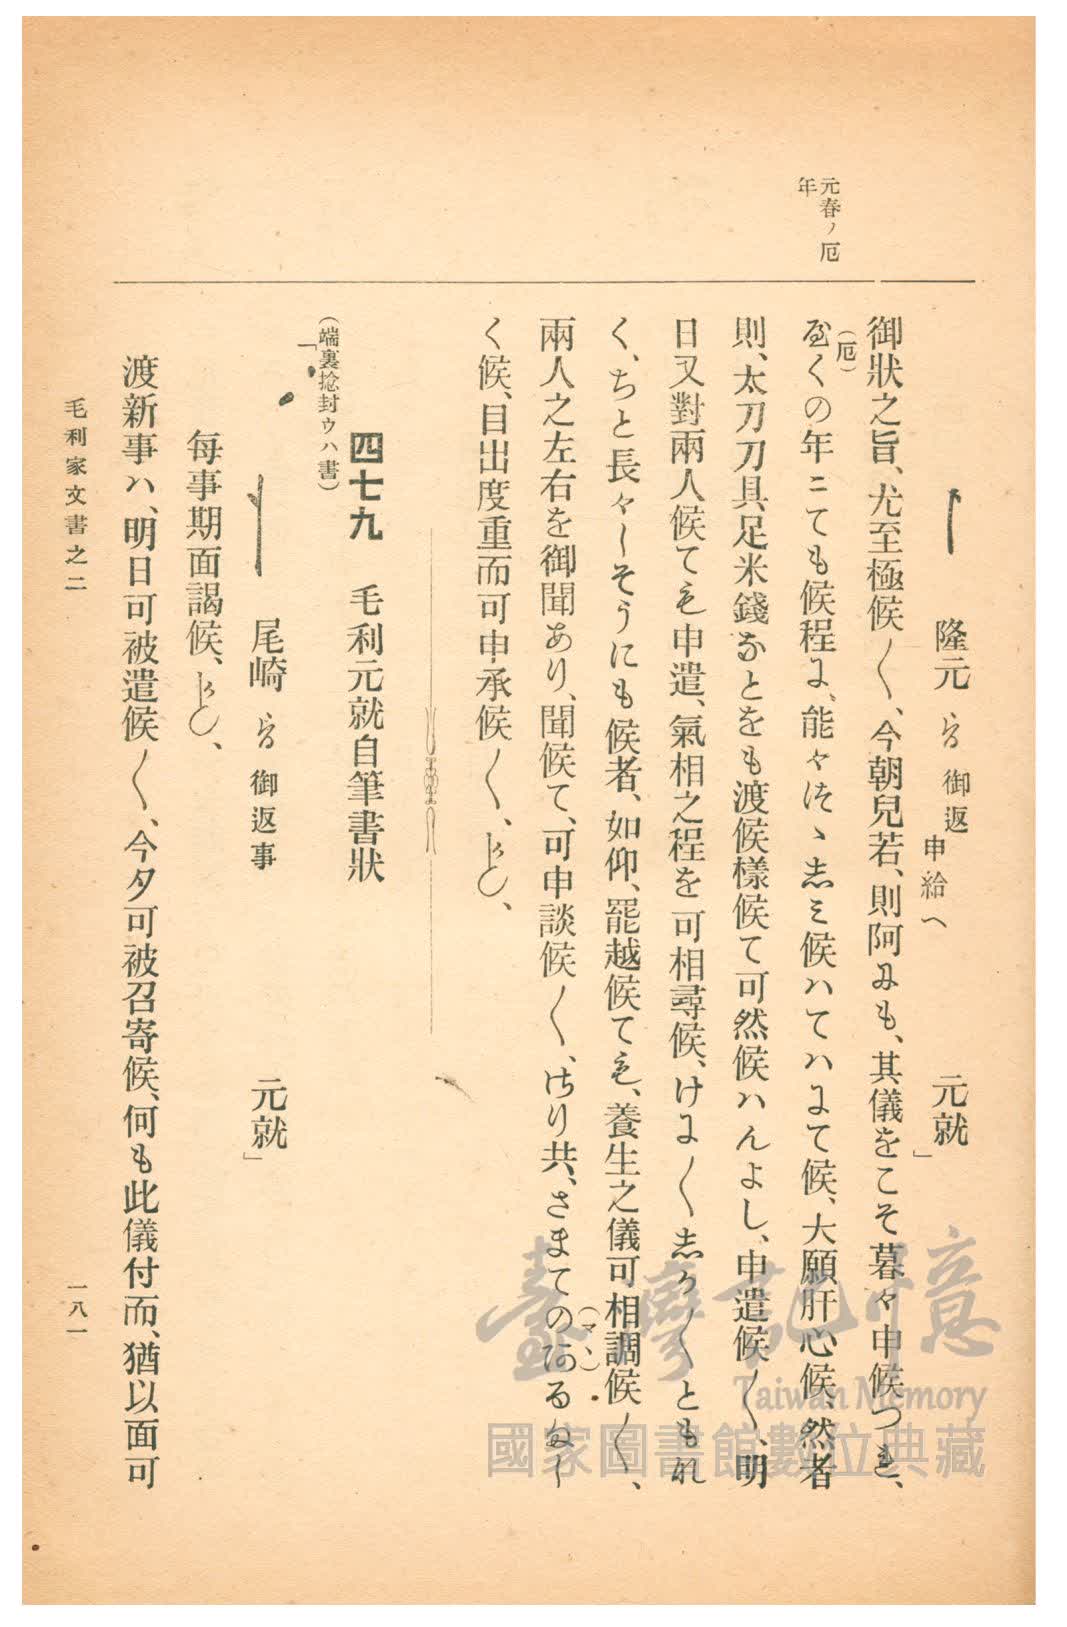 元春ノ厄
年
隆元 ゟ 御返
申給へ
元就」
御狀之旨、尤至極候〳〵、今朝兒若、則阿ニも、其儀をこそ暮々申候つれ、
(厄)
やくの年ニても候程ニ、能々つゝしミ候ハてハにて候、大願肝心候、然者
則、太刀刀具足米錢などをも渡候樣候て可然候ハんよし、申遣候〳〵、明
日又對兩人候ても申遣、氣相之程を可相尋候、けに〳〵しか〳〵ともれ
く、ちと長々しそうにも候者、如仰、罷越候ても、養生之儀可相調候〳〵、
兩人之左右を御聞あり、聞候て、可申談候〳〵、はり共、さまての
(マヽ)
く候、目出度重而可申承候〳〵、かしく、
四七九 毛利元就自筆書狀
(端裏捻封ウハ書)
「
尾崎 ゟ 御返事 元就」
每事期面謁候、かしく、
渡新事ハ、明日可被遣候〳〵、今夕可被召寄候、何も此儀付而、猶以面可
毛利家文書之二
一八一
臺灣記憶
Taiwan Memory
國家圖書館數位典藏